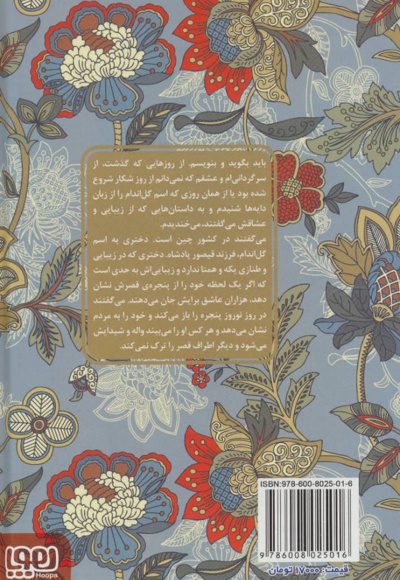 باید بگوید و بنویسم. از روزهایی که گذشت، از
سرگردانی‌ام و عشقم که نمی‌دانم از روز شکار شروع
شده بود یا از همان روزی که اسم گل‌اندام را از زبان
دایه‌ها شنیدم و به داستان‌هایی که از زیبایی و
عشاقش می‌گفتند، می‌خندیدم.
می‌گفتند در کشور چین است. دختری به اسم
گل‌اندام، فرزند فیصور پادشاه. دختری که در زیبایی
و طنازی یکه و همتا ندارد و زیبایی‌اش به حدی است
که اگر یک لحظه خود را از پنجره‌ی قصرش نشان
دهد، هزاران عاشق برایش جان می‌دهند. می‌گفتند
در روز نوروز پنجره را باز می‌کند و خود را به مردم
نشان می‌دهد و هر کس او را می‌بیند واله و شیدایش
می‌شود و دیگر اطراف قصر را ترک نمی‌کند.
ISBN:978-600-8025-01-6
9 786008 025016
قیمت: ۱۷۰۰۰ تومان
هوپا
Hoopa